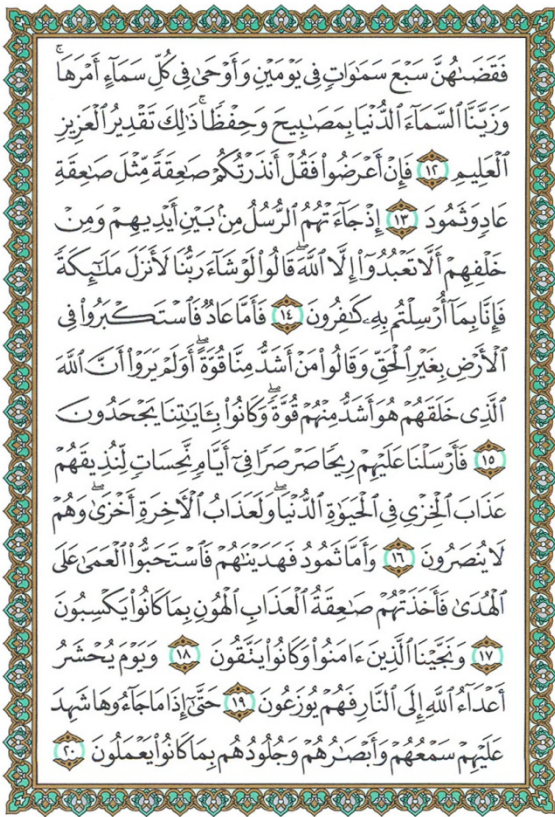 فَقَضَىٰهُنَّ سَبْعَ سَمَٰوَاتٍ فِى يَوْمَيْنِ وَأَوْحَىٰ فِى كُلِّ سَمَآءٍ أَمْرَهَا ۚ
وَزَيَّنَّا ٱلسَّمَآءَ ٱلدُّنْيَا بِمَصَٰبِيحَ وَحِفْظًا ۚ ذَٰلِكَ تَقْدِيرُ ٱلْعَزِيزِ
ٱلْعَلِيمِ ١٢ فَإِنْ أَعْرَضُوا۟ فَقُلْ أَنذَرْتُكُمْ صَٰعِقَةً مِّثْلَ صَٰعِقَةِ
عَادٍ وَثَمُودَ ١٣ إِذْ جَآءَتْهُمُ ٱلرُّسُلُ مِنۢ بَيْنِ أَيْدِيهِمْ وَمِنْ
خَلْفِهِمْ أَلَّا تَعْبُدُوٓا۟ إِلَّا ٱللَّهَ ۖ قَالُوا۟ لَوْ شَآءَ رَبُّنَا لَأَنزَلَ مَلَٰٓئِكَةً
فَإِنَّا بِمَآ أُرْسِلْتُم بِهِۦ كَٰفِرُونَ ١٤ فَأَمَّا عَادٌ فَٱسْتَكْبَرُوا۟ فِى
ٱلْأَرْضِ بِغَيْرِ ٱلْحَقِّ وَقَالُوا۟ مَنْ أَشَدُّ مِنَّا قُوَّةً ۖ أَوَلَمْ يَرَوْا۟ أَنَّ ٱللَّهَ
ٱلَّذِى خَلَقَهُمْ هُوَ أَشَدُّ مِنْهُمْ قُوَّةً ۖ وَكَانُوا۟ بِـَٔايَٰتِنَا يَجْحَدُونَ
١٥ فَأَرْسَلْنَا عَلَيْهِمْ رِيحًا صَرْصَرًا فِىٓ أَيَّامٍ نَّحِسَاتٍ لِّنُذِيقَهُمْ
عَذَابَ ٱلْخِزْىِ فِى ٱلْحَيَوٰةِ ٱلدُّنْيَا ۖ وَلَعَذَابُ ٱلْءَاخِرَةِ أَخْزَىٰ ۖ وَهُمْ
لَا يُنصَرُونَ ١٦ وَأَمَّا ثَمُودُ فَهَدَيْنَٰهُمْ فَٱسْتَحَبُّوا۟ ٱلْعَمَىٰ عَلَى
ٱلْهُدَىٰ فَأَخَذَتْهُمْ صَٰعِقَةُ ٱلْعَذَابِ ٱلْهُونِ بِمَا كَانُوا۟ يَكْسِبُونَ
١٧ وَنَجَّيْنَا ٱلَّذِينَ ءَامَنُوا۟ وَكَانُوا۟ يَتَّقُونَ ١٨ وَيَوْمَ يُحْشَرُ
أَعْدَآءُ ٱللَّهِ إِلَى ٱلنَّارِ فَهُمْ يُوزَعُونَ ١٩ حَتَّىٰٓ إِذَا مَا جَآءُوهَا شَهِدَ
عَلَيْهِمْ سَمْعُهُمْ وَأَبْصَٰرُهُمْ وَجُلُودُهُم بِمَا كَانُوا۟ يَعْمَلُونَ ٢٠